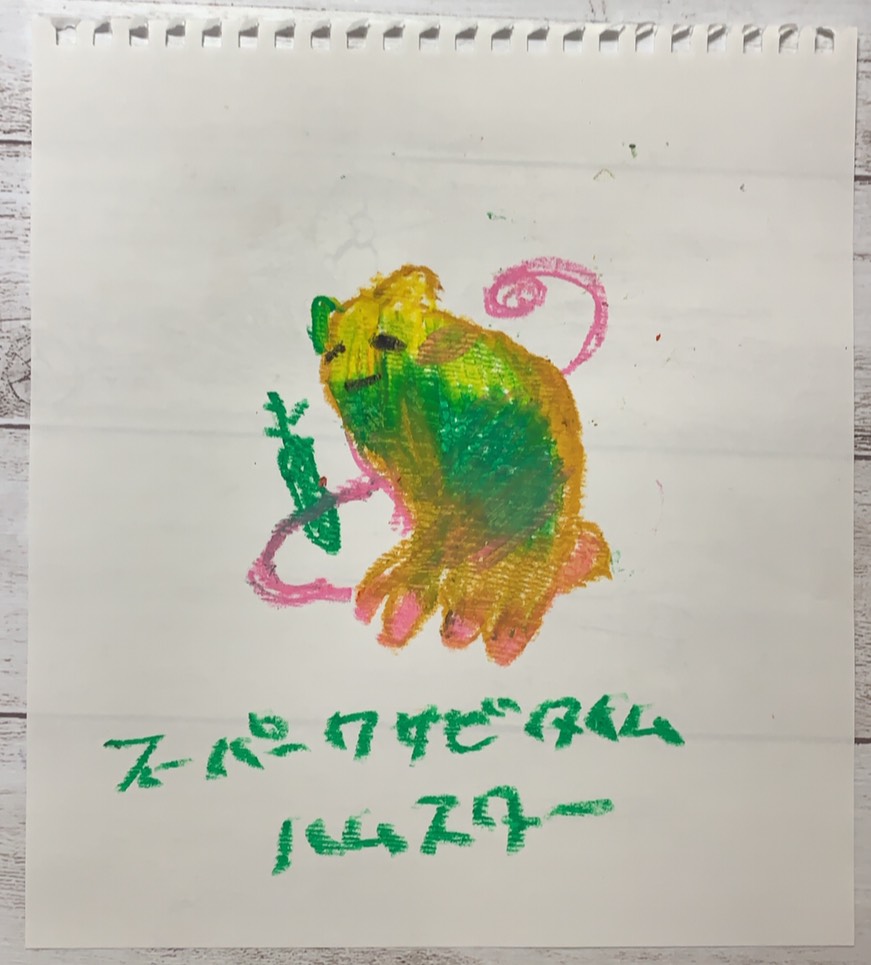 スーパーワサビタイム
ハムスター